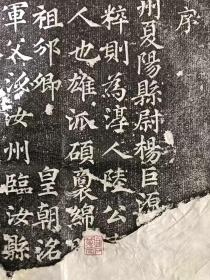 序
州夏陽縣尉楊巨源
粹則為淳人陸公
人也雄派碩裏綿
祖邠卿 皇朝洺
軍父泛汝州臨汝縣